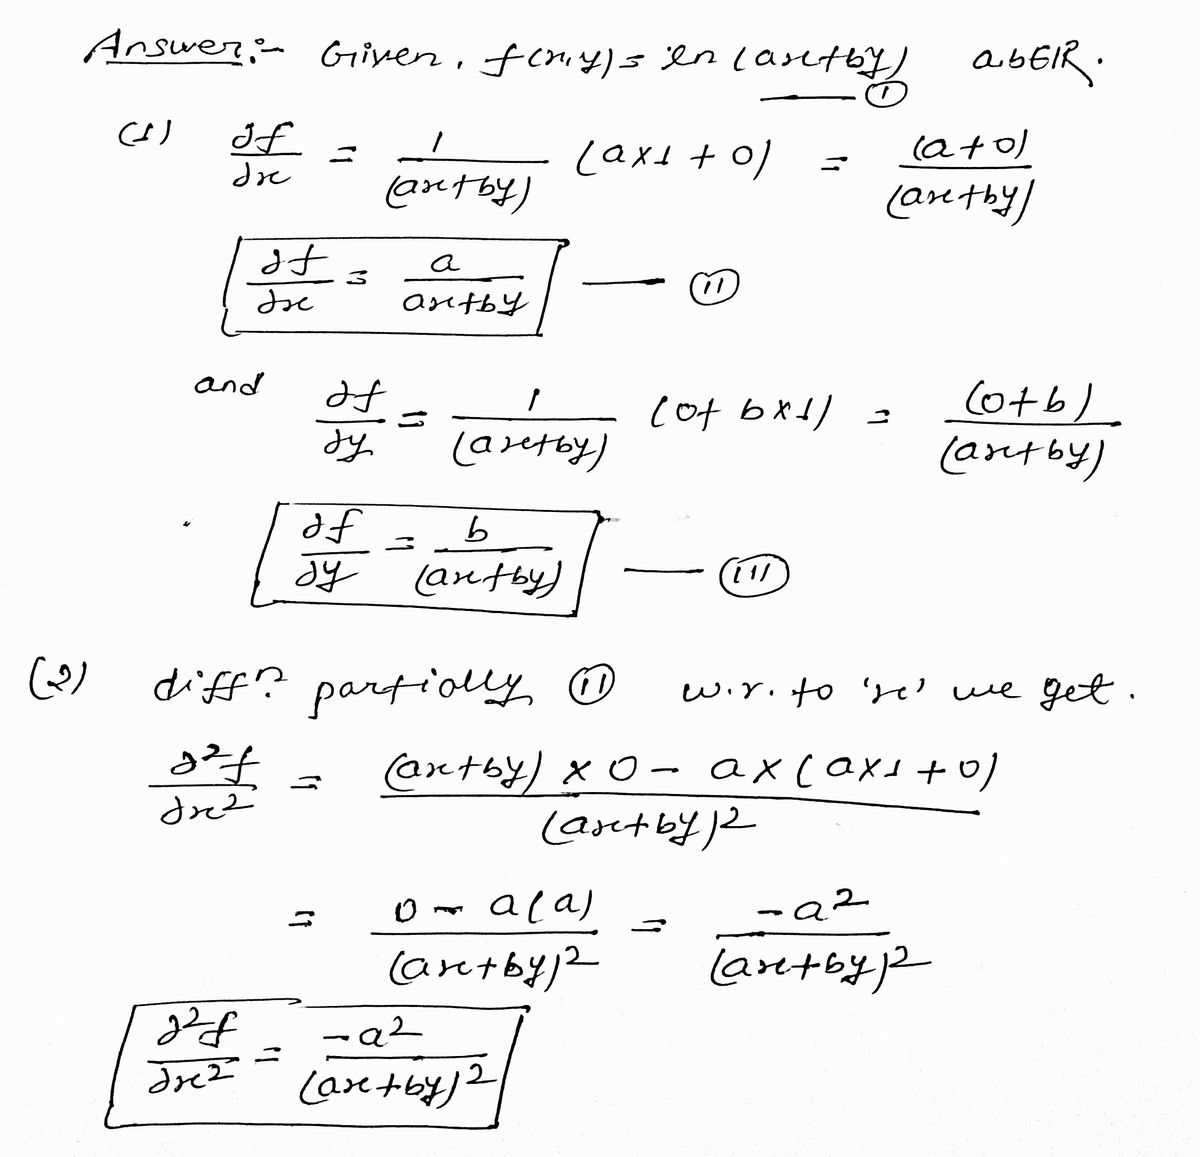 Answer:- Given, f(x,y) = ln (ax+by) a,b∈ℝ. — (i)
(1) ∂f/∂x = 1/(ax+by) (a×1 + 0) = (a+0)/(ax+by)
∂f/∂x = a/ax+by — (ii)
and ∂f/∂y = 1/(ax+by) (0+ b×1) = (0+b)/(ax+by)
∂f/∂y = b/(ax+by) — (iii)
(2) diffⁿ partially (ii) w.r. to 'x' we get.
∂²f/∂x² = (ax+by) × 0 - a × (a×1 + 0)/(ax+by)²
= 0 - a(a)/(ax+by)² = -a²/(ax+by)²
∂²f/∂x² = -a²/(ax+by)²